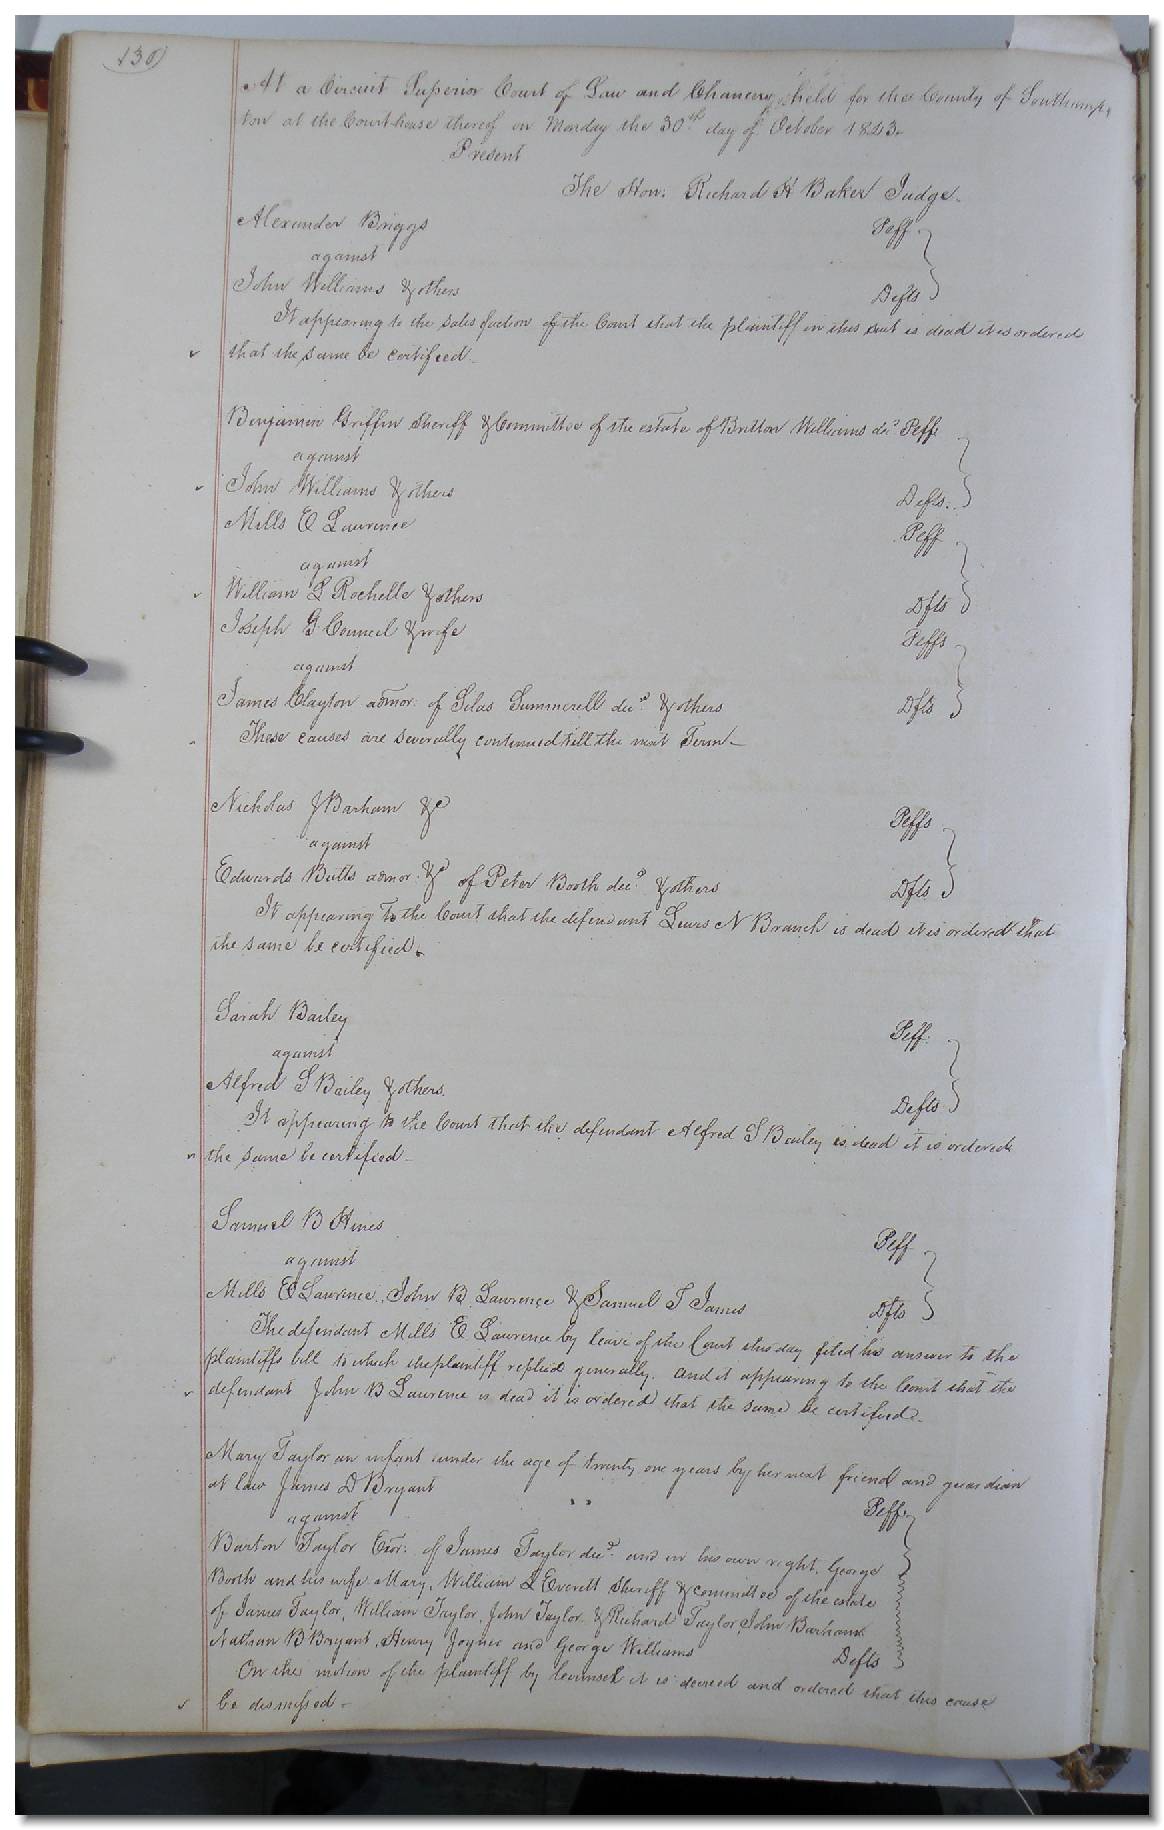 130
At a Circuit Superior Court of Law and Chancery held for the County of Southamp-
ton at the Courthouse thereof on Monday the 30th day of October 1843.
Present
The Hon. Richard H Baker Judge.
Alexander Briggs Peff
against
John Williams & others Defts
It appearing to the satisfaction of the Court that the plaintiff in this suit is dead it is ordered
that the same be certified.
Benjamin Griffin Sheriff & Committee of the estate of Britton Williams decd Peff.
against
John Williams & others Defts.
Mills E Lawrence Peff
against
William L Rochelle & others Dfts
Joseph G Council & wife Peffs
against
James Clayton admor. of Silas Summerell decd. & others Dfts
These causes are severally continued till the next Term.
Nicholas J Barham &c Peffs
against
Edwards Butts admor. &c of Peter Booth decd. & others Dfts
It appearing to the Court that the defendant Lewis N Branch is dead it is ordered that
the same be certified.
Sarah Bailey Peff.
against
Alfred S Bailey & others. Defts
It appearing to the Court that the defendant Alfred S Bailey is dead it is ordered
the same be certified.
Samuel B Hines Peff
against
Mills E Lawrence, John B Lawrence & Samuel T James Dfts
The defendant Mills E Lawrence by leave of the Court this day filed his answer to the
plaintiffs bill to which the plaintiff replied generally. and it appearing to the Court that the
defendant John B Lawrence is dead it is ordered that the same be certified.
Mary Taylor an infant under the age of twenty one years by her next friend and guardian
at law James D Bryant Peff.
against
Barton Taylor Exor. of James Taylor decd. and in his own right, George
Booth and his wife Mary, William L Everett Sheriff & committee of the estate
of James Taylor, William Taylor, John Taylor & Richard Taylor, John Barham
Nathan B Bryant, Henry Joyner and George Williams Defts
On the motion of the plaintiff by Counsel it is decreed and ordered that this cause
be dismissed.